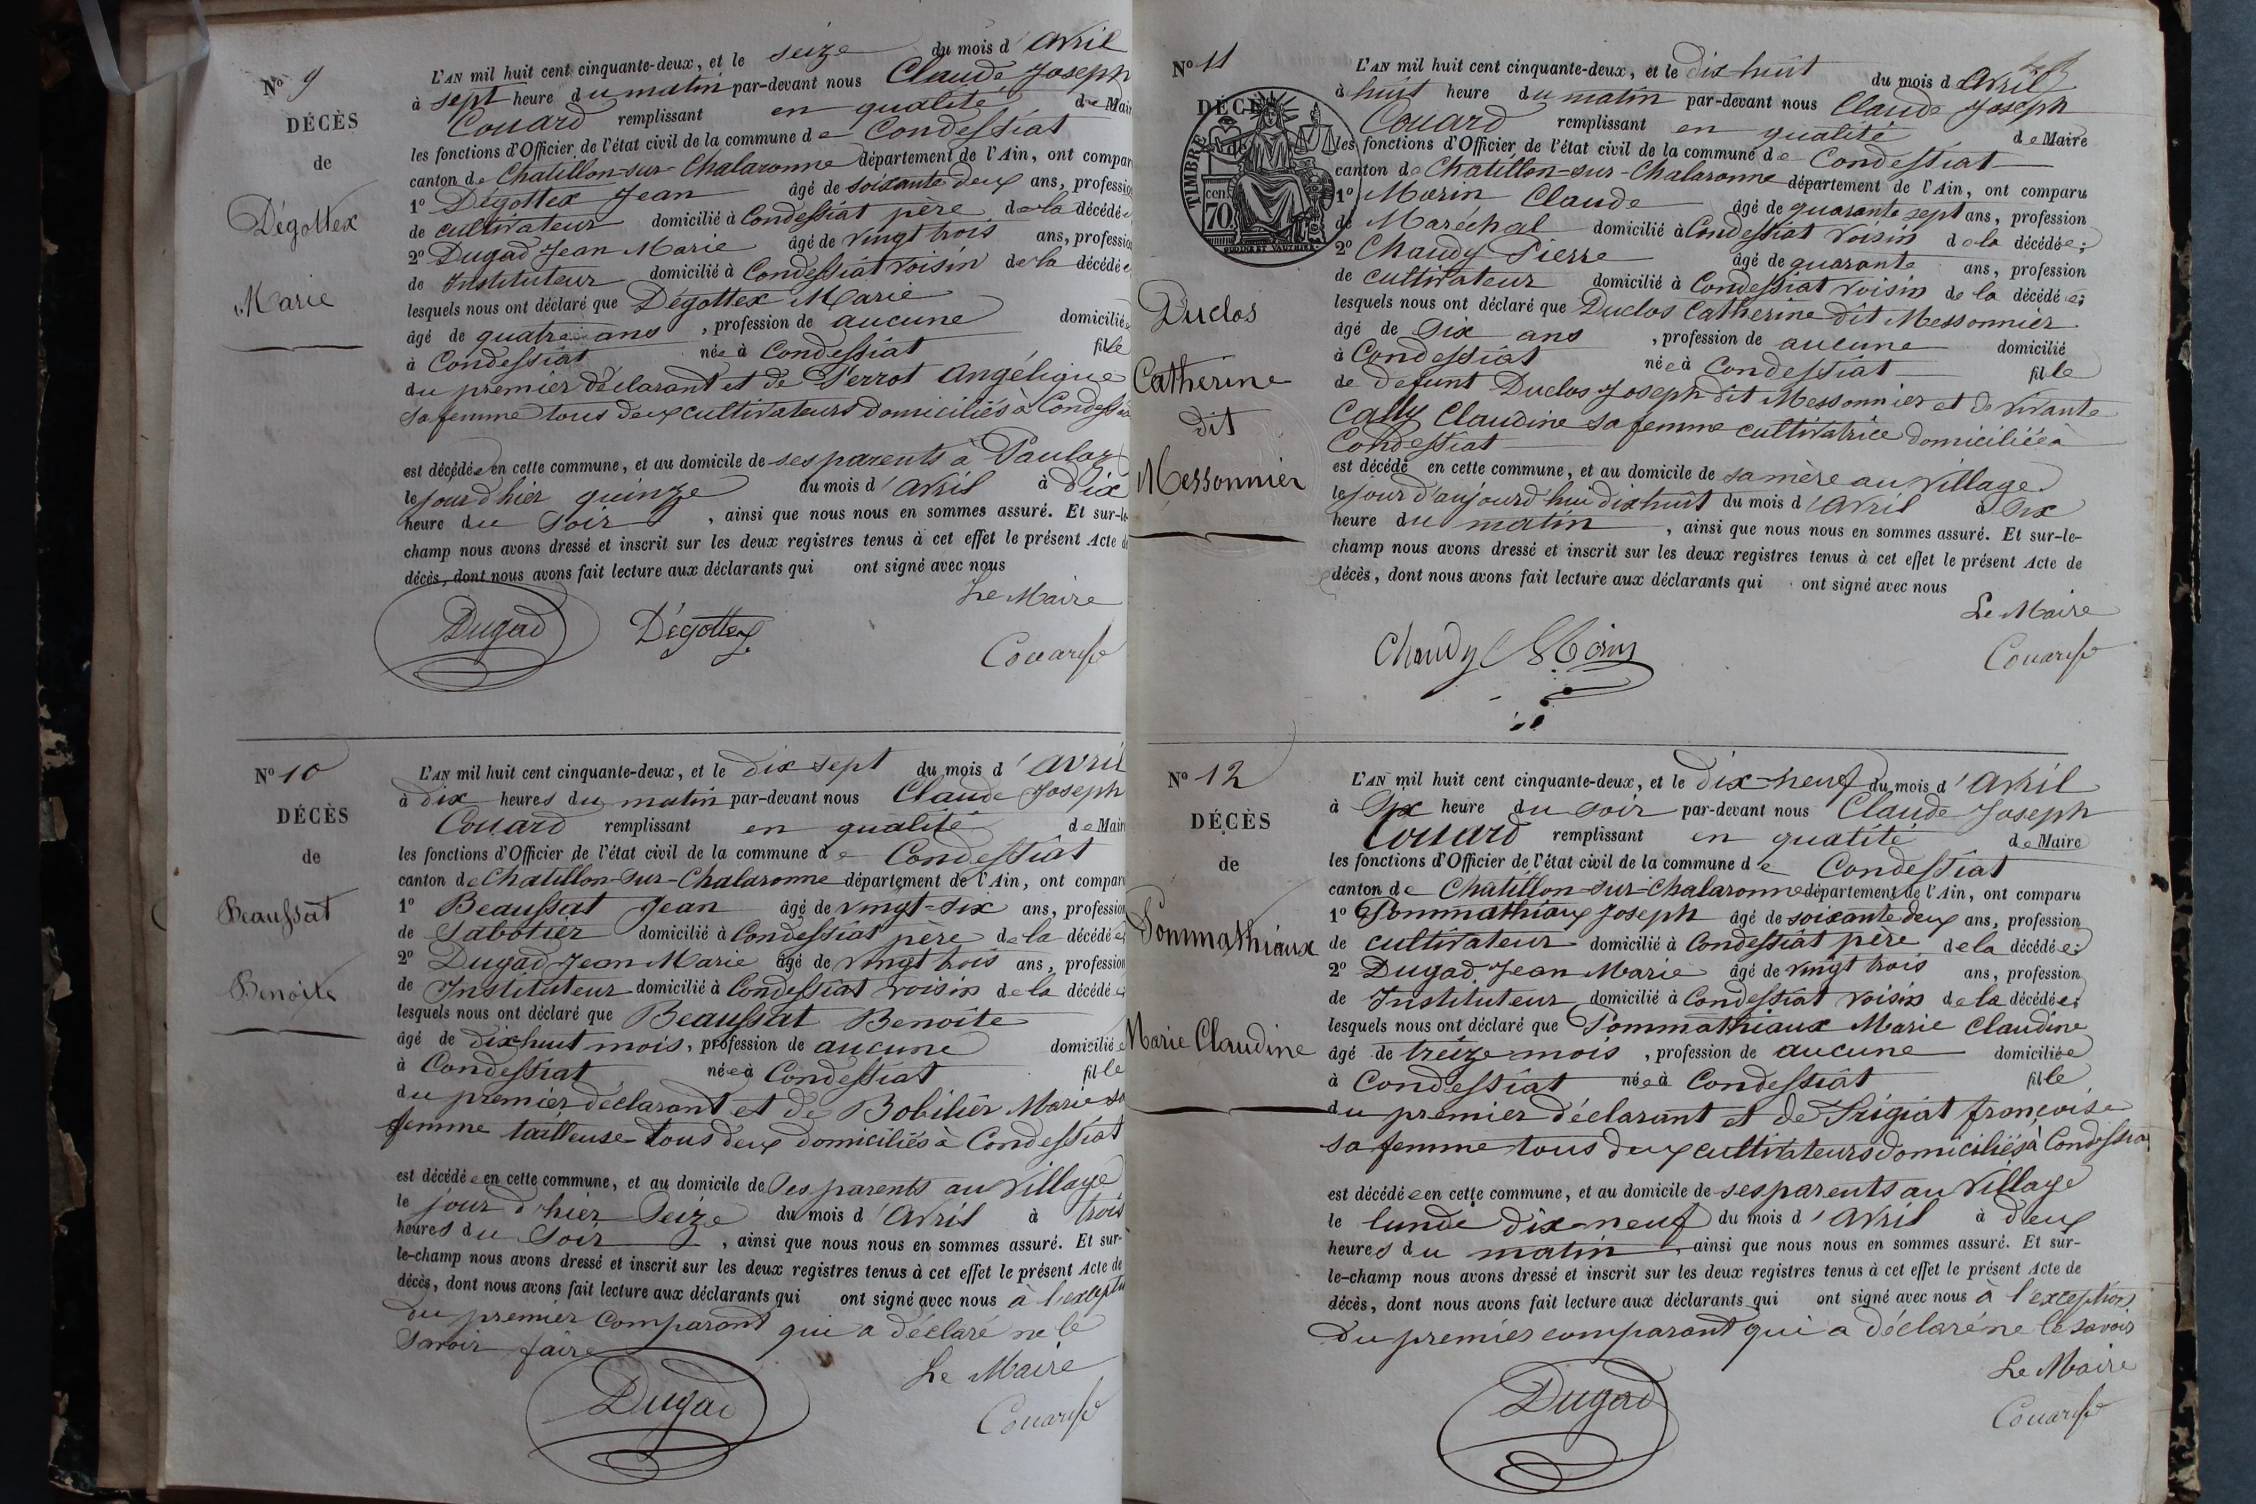 N° 9
DÉCÈS
de
Dégottex
Marie
L'AN mil huit cent cinquante-deux, et le seize du mois d'Avril
à sept heure du matin par-devant nous Claude Joseph
Couard remplissant en qualité de Mair
les fonctions d'Officier de l'état civil de la commune de Condessiat
canton de Chatillon-sur-Chalaronne département de l'Ain, ont compar
1° Dégottex Jean âgé de soixante deux ans, profession
de cultivateur domicilié à Condessiat père de la décédée
2° Dugad Jean Marie âgé de vingt trois ans, profession
de Instituteur domicilié à Condessiat voisin de la décédée
lesquels nous ont déclaré que Dégottex Marie
âgé de quatre ans, profession de aucune domiciliée
à Condessiat née à Condessiat fille
du premier déclarant et de Perrot Angélique
sa femme tous deux cultivateurs domiciliés à Condessia
est décédée en cette commune, et au domicile de ses parents à
le jour d'hier quinze du mois d'Avril à dix
heure du soir, ainsi que nous nous en sommes assuré. Et sur-le-
champ nous avons dressé et inscrit sur les deux registres tenus à cet effet le présent Acte de
décès, dont nous avons fait lecture aux déclarants qui ont signé avec nous
Le Maire
Dugad Dégottex Couard
N° 10
DÉCÈS
de
Beaussat
Benoite
L'AN mil huit cent cinquante-deux, et le dix sept du mois d'Avril
à dix heures du matin par-devant nous Claude Joseph
Couard remplissant en qualité de Mair
les fonctions d'Officier de l'état civil de la commune de Condessiat
canton de Chatillon-sur-Chalaronne département de l'Ain, ont compar
1° Beaussat Jean âgé de vingt-six ans, profession
de Sabotier domicilié à Condessiat père de la décédée;
2° Dugad Jean Marie âgé de vingt trois ans, profession
de Instituteur domicilié à Condessiat voisin de la décédée;
lesquels nous ont déclaré que Beaussat Benoite
âgé de dix huit mois, profession de aucune domiciliée
à Condessiat née à Condessiat fille
du premier déclarant et de Bobilier Marie sa
femme tailleuse tous deux domiciliés à Condessiat
est décédée en cette commune, et au domicile de ses parents au village
le jour d'hier seize du mois d'Avril à trois
heures du soir, ainsi que nous nous en sommes assuré. Et sur-
le-champ nous avons dressé et inscrit sur les deux registres tenus à cet effet le présent Acte de
décès, dont nous avons fait lecture aux déclarants qui ont signé avec nous à l'exceptio
du premier comparant qui a déclaré ne le
savoir faire
Le Maire
Dugad Couard
N° 11
DÉCÈS
de
TIMBRE
70 cen.
Duclos
Catherine
dit
Messonnier
L'AN mil huit cent cinquante-deux, et le dix huit du mois d'Avril
à huit heure du matin par-devant nous Claude Joseph
Couard remplissant en qualité de Maire
les fonctions d'Officier de l'état civil de la commune de Condessiat
canton de Chatillon-sur-Chalaronne département de l'Ain, ont comparu
1° Morin Claude âgé de quarante sept ans, profession
de Maréchal domicilié à Condessiat voisin de la décédée;
2° Chaudy Pierre âgé de quarante ans, profession
de cultivateur domicilié à Condessiat voisin de la décédée;
lesquels nous ont déclaré que Duclos Catherine dit Messonnier
âgé de Six ans, profession de aucune domicilié
à Condessiat née à Condessiat fille
de defunt Duclos Joseph dit Messonnier et de vivante
Cally Claudine sa femme cultivatrice domiciliée à
Condessiat
est décédé en cette commune, et au domicile de sa mère au village
le jour d'aujourd'hui dix huit du mois d'Avril à Six
heure du matin, ainsi que nous nous en sommes assuré. Et sur-le-
champ nous avons dressé et inscrit sur les deux registres tenus à cet effet le présent Acte de
décès, dont nous avons fait lecture aux déclarants qui ont signé avec nous
Le Maire
Chaudy Morin Couard
N° 12
DÉCÈS
de
Pommathiaux
Marie Claudine
L'AN mil huit cent cinquante-deux, et le dix-neuf du mois d'Avril
à Six heure du soir par-devant nous Claude Joseph
Couard remplissant en qualité de Maire
les fonctions d'Officier de l'état civil de la commune de Condessiat
canton de Chatillon-sur-Chalaronne département de l'Ain, ont comparu
1° Pommathiaux Joseph âgé de soixante deux ans, profession
de cultivateur domicilié à Condessiat père de la décédée;
2° Dugad Jean Marie âgé de vingt trois ans, profession
de Instituteur domicilié à Condessiat voisin de la décédée;
lesquels nous ont déclaré que Pommathiaux Marie Claudine
âgé de treize mois, profession de aucune domiciliée
à Condessiat née à Condessiat fille
du premier déclarant et de françoise
sa femme tous deux cultivateurs domiciliés à Condessia
est décédée en cette commune, et au domicile de ses parents au village
le lundi dix-neuf du mois d'Avril à deux
heures du matin, ainsi que nous nous en sommes assuré. Et sur-
le-champ nous avons dressé et inscrit sur les deux registres tenus à cet effet le présent Acte de
décès, dont nous avons fait lecture aux déclarants qui ont signé avec nous à l'exception
du premier comparant qui a déclaré ne le savoir
Le Maire
Dugad Couard